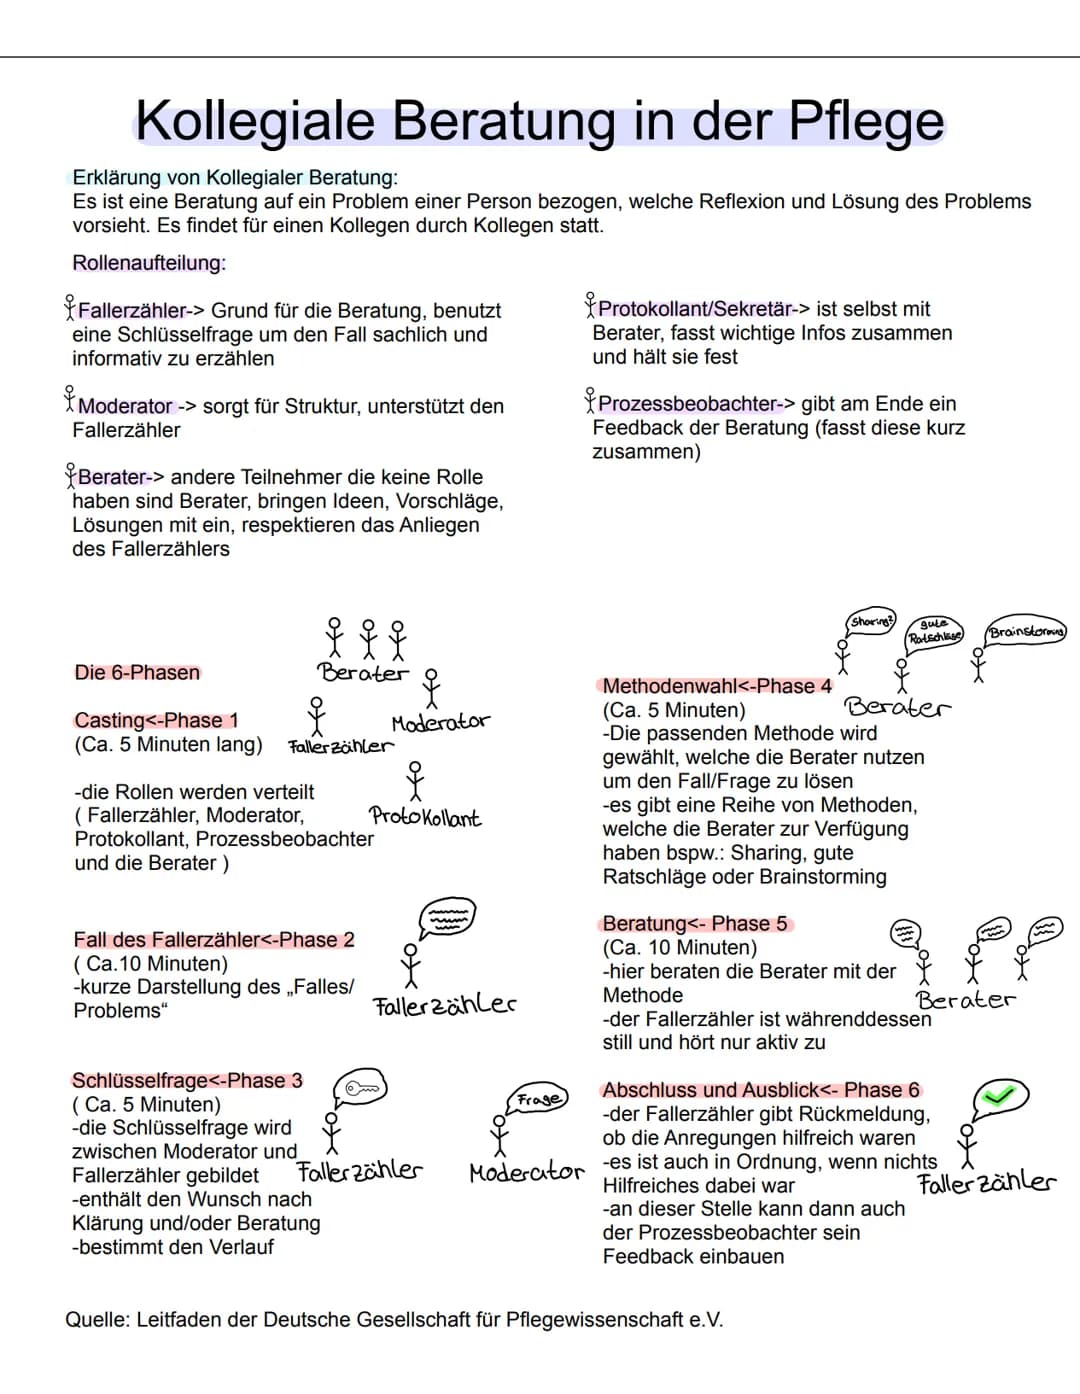 Kollegiale Beratung in der Pflege
Erklärung von Kollegialer Beratung:
Es ist eine Beratung auf ein Problem einer Person bezogen, welche Reflexion und Lösung des Problems
vorsieht. Es findet für einen Kollegen durch Kollegen statt.
Rollenaufteilung:
Fallerzähler-> Grund für die Beratung, benutzt
eine Schlüsselfrage um den Fall sachlich und
informativ zu erzählen
Moderator -> sorgt für Struktur, unterstützt den
Fallerzähler
Berater-> andere Teilnehmer die keine Rolle
haben sind Berater, bringen Ideen, Vorschläge,
Lösungen mit ein, respektieren das Anliegen
des Fallerzählers
Protokollant/Sekretär-> ist selbst mit
Berater, fasst wichtige Infos zusammen
und hält sie fest
Prozessbeobachter-> gibt am Ende ein
Feedback der Beratung (fasst diese kurz
zusammen)
Die 6-Phasen
Berater
Casting<-Phase 1
(Ca. 5 Minuten lang)
Moderator
Fallerzähler
-die Rollen werden verteilt
( Fallerzähler, Moderator,
Protokollant, Prozessbeobachter
und die Berater )
Protokollant
Fall des Fallerzähler<-Phase 2
( Ca.10 Minuten)
-kurze Darstellung des „Falles/
Problems“
Fallerzähler
Schlüsselfrage<-Phase 3
( Ca. 5 Minuten)
-die Schlüsselfrage wird
zwischen Moderator und
Fallerzähler gebildet
-enthält den Wunsch nach
Klärung und/oder Beratung
-bestimmt den Verlauf
Fallerzähler
Frage
Moderator
Sharing?
gute
Ratschläge
Brainstorming
Methodenwahl<-Phase 4
(Ca. 5 Minuten)
Berater
-Die passenden Methode wird
gewählt, welche die Berater nutzen
um den Fall/Frage zu lösen
-es gibt eine Reihe von Methoden,
welche die Berater zur Verfügung
haben bspw.: Sharing, gute
Ratschläge oder Brainstorming
Beratung<- Phase 5
(Ca. 10 Minuten)
-hier beraten die Berater mit der
Methode
-der Fallerzähler ist währenddessen
still und hört nur aktiv zu
Berater
Abschluss und Ausblick<- Phase 6
-der Fallerzähler gibt Rückmeldung,
ob die Anregungen hilfreich waren
-es ist auch in Ordnung, wenn nichts
Hilfreiches dabei war
-an dieser Stelle kann dann auch
der Prozessbeobachter sein
Feedback einbauen
Fallerzähler
Quelle: Leitfaden der Deutsche Gesellschaft für Pflegewissenschaft e.V.